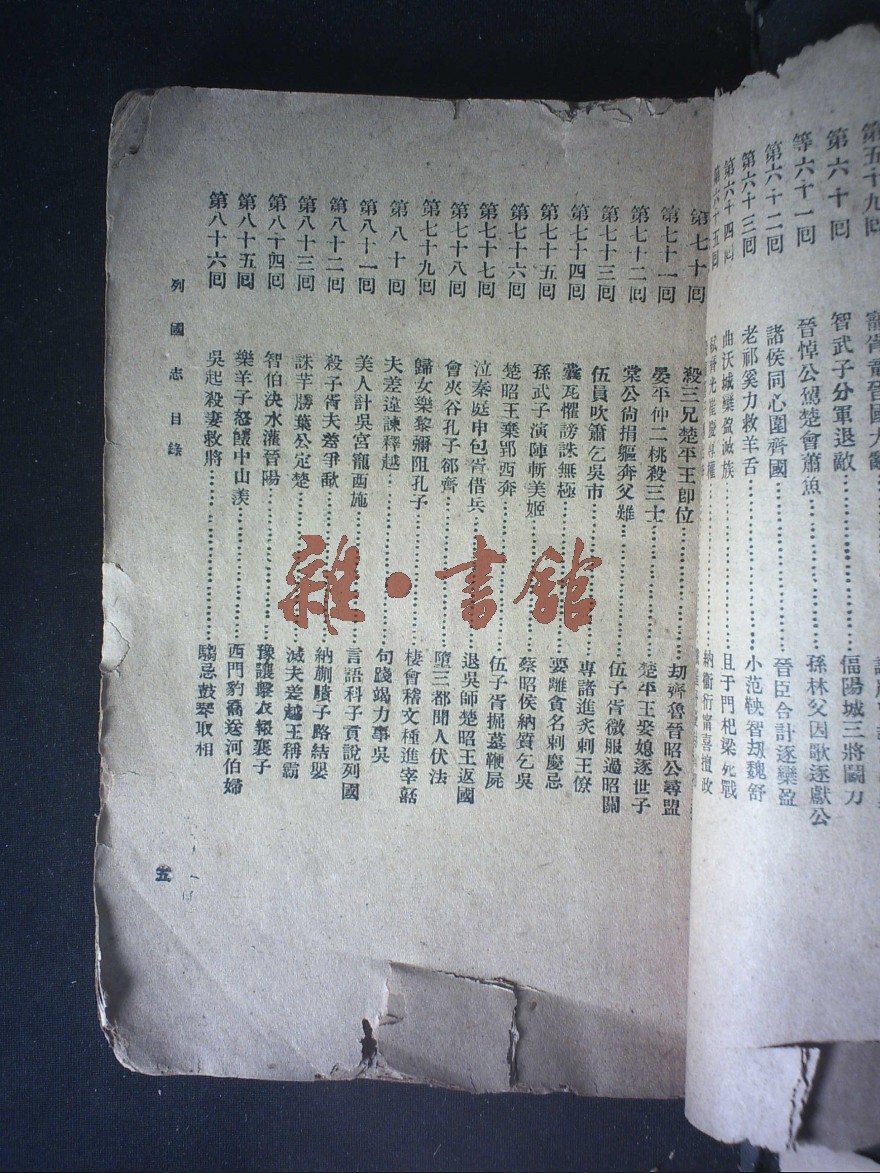 第五十九回
第六十回 智武子分軍退敵……偪陽城三將鬬力
等六十一回 晉悼公駕楚會蕭魚……孫林父因歌逐獻公
第六十二回 諸侯同心圍齊國……晉臣合計逐欒盈
第六十三回 老祁奚力救羊舌……小范鞅智劫魏舒
第六十四回 曲沃城欒盈滅族……且于門杞梁死戰
第六十五回 納衞衎甯喜擅政
第七十回 殺三兄楚平王卽位……劫齊魯晉昭公尋盟
第七十一回 晏平仲二桃殺三士……楚平王娶媳逐世子
第七十二回 棠公尙捐軀奔父難……伍子胥微服過昭關
第七十三回 伍員吹簫乞吳市……專諸進炙刺王僚
第七十四回 囊瓦懼謗誅無極……要離貪名刺慶忌
第七十五回 孫武子演陣斬美姬……蔡昭侯納質乞吳
第七十六回 楚昭王棄郢西奔……伍子胥掘墓鞭屍
第七十七回 泣秦庭申包胥借兵……退吳師楚昭王返國
第七十八回 會夾谷孔子郤齊……墮三都聞人伏法
第七十九回 歸女樂黎彌阻孔子……棲會稽文種進宰嚭
第八十回 夫差違諫釋越……句踐竭力事吳
第八十一回 美人計吳宮寵西施……言語科子貢說列國
第八十二回 殺子胥夫差爭歃……納蒯瞶子路結嬰
第八十三回 誅芉勝葉公定楚……滅夫差越王稱霸
第八十四回 智伯決水灌晉陽……豫讓擊衣報襄子
第八十五回 樂羊子怒餟中山羹……西門豹喬送河伯婦
第八十六回 吳起殺妻救將……騶忌鼓琴取相
列國志目錄
五
雜·書館